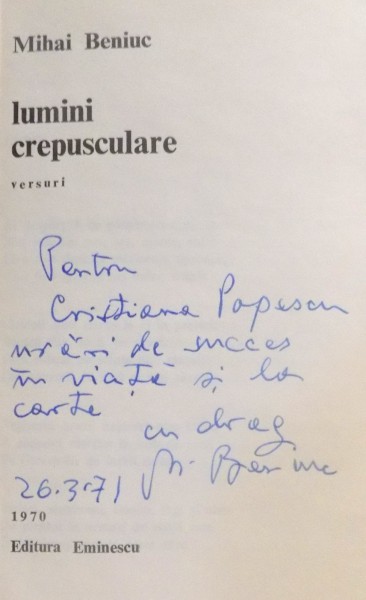 Mihai Beniuc
lumini
crepusculare
versuri
Pentru
Cristiana Popescu
urări de succes
în viață și la
carte
cu drag
M. Beniuc
26.3.71
1970
Editura Eminescu